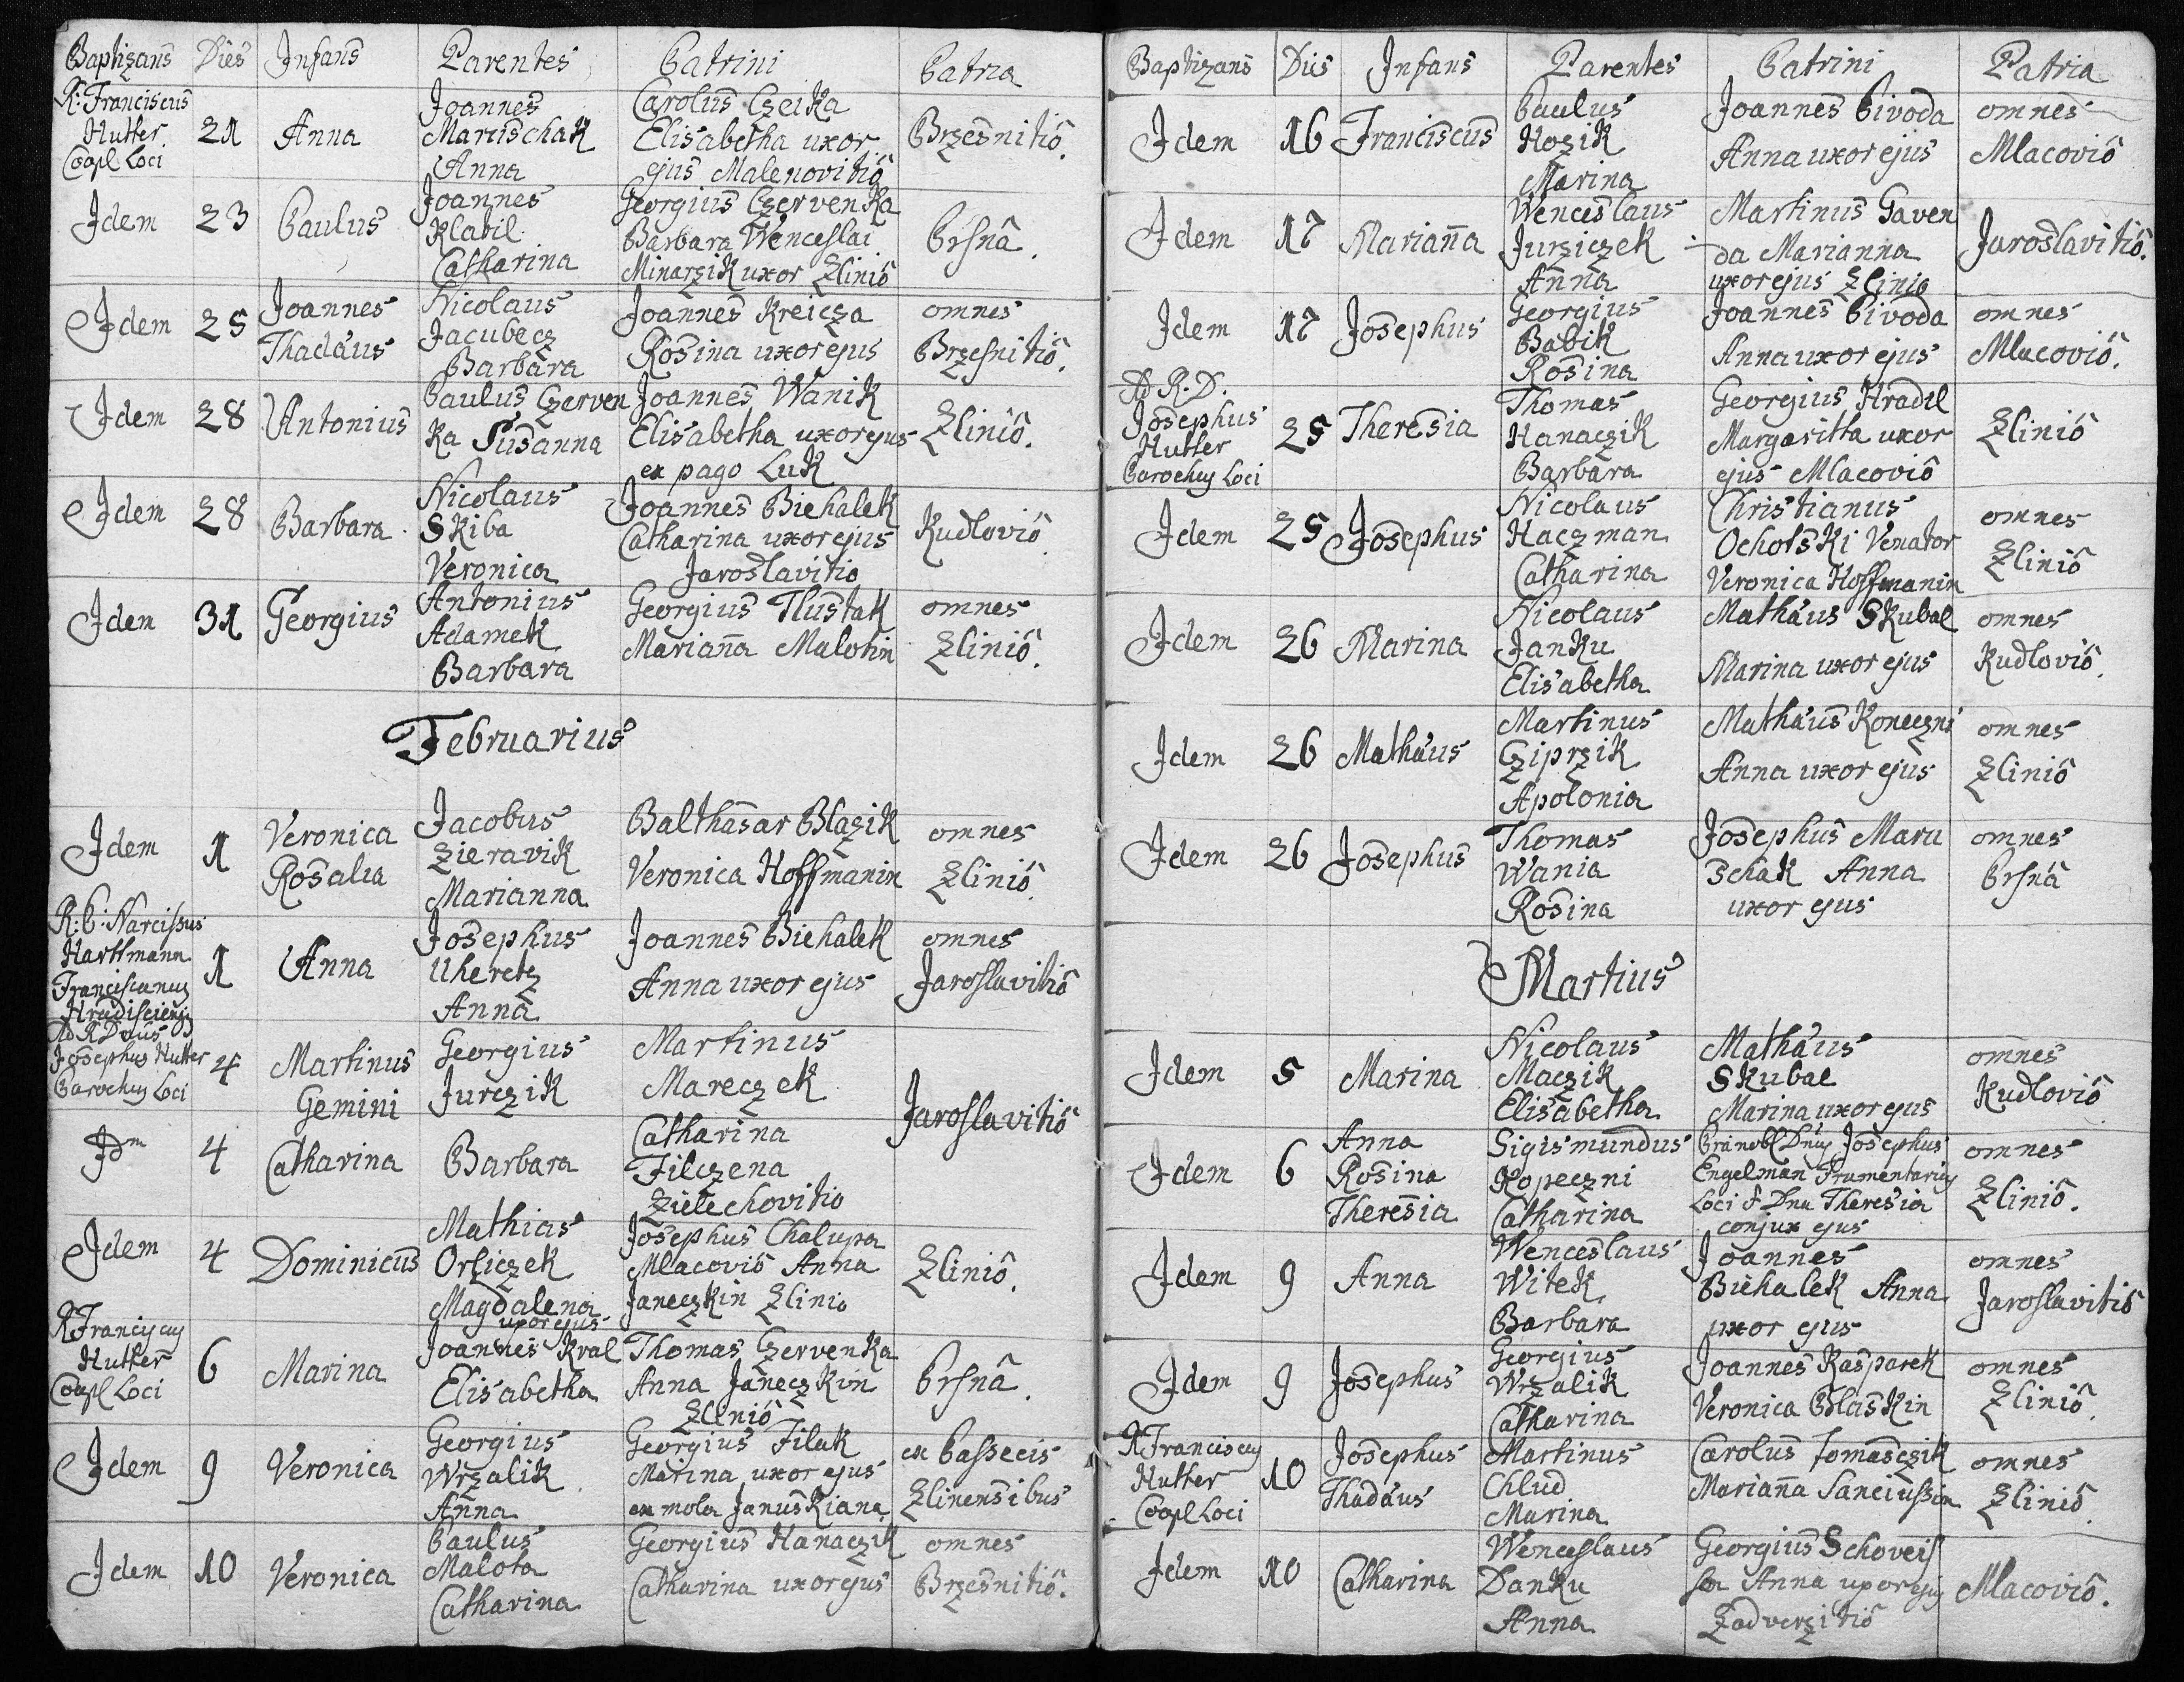 Baptizans Dies Infans Parentes Patrini Patria
R: Franciscus Hutter Coopl Loci 21 Anna Joannes Marischak Anna Carolus Czeika Elisabetha uxor ejus Malenovitiô Brzesnitiô.
Idem 23 Paulus Joannes Klabil Catharina Georgius Czervenka Barbara Wenceslai Minarzik uxor Zliniô Prsnâ.
Idem 25 Joannes Thadäus Nicolaus Jacubecz Barbara Joannes Kreicza Rosina uxor ejus omnes Brzesnitiô.
Idem 28 Antonius Paulus Czervenka Susanna Joannes Wanik Elisabetha uxor ejus ex pago Luk Zliniô.
Idem 28 Barbara Nicolaus Skiba Veronica Joannes Biehalek Catharina uxor ejus Jaroslavitio Kudloviô
Idem 31 Georgius Antonius Adamek Barbara Georgius Tlustak Mariana Malotin omnes Zliniô.
Februarius
Idem 1 Veronica Rosalia Jacobus Zieravik Marianna Balthasar Blazik Veronica Hoffmanin omnes Zliniô
R: P: Narcissus Hartmann Franciscanus Hradisciensis 1 Anna Josephus Uheretz Anna Joannes Biehalek Anna uxor ejus omnes Jaroslavitiô
Ad R Dnus Josephus Hutter Parochus Loci 4 Martinus Gemini Georgius Jurczik Martinus Mareczek Jaroslavitiô
Idm 4 Catharina Barbara Catharina Filczena Zielechovitio
Idem 4 Dominicus Mathias Orsiczek Magdalena uxor ejus Josephus Chalupa Mlacoviô Anna Janeczkin Zlinio Zliniô.
R Franciscus Hutter Coopl Loci 6 Marina Joannes Kral Elisabetha Thomas Czervenka Anna Janeczkin Zliniô Prsnâ.
Idem 9 Veronica Georgius Wrzalik Anna Georgius Filak Marina uxor ejus ex mola Januskiana ex Passecis Zlinensibus
Idem 10 Veronica Paulus Malota Catharina Georgius Hanaczik Catharina uxor ejus omnes Brzesnitiô.
Baptizans Dies Infans Parentes Patrini Patria
Idem 16 Franciscus Paulus Hozik Marina Joannes Pivoda Anna uxor ejus omnes Mlacoviô
Idem 17 Mariana Wenceslaus Jurziczek Anna Martinus Gavenda Marianna uxor ejus Zlinio Jaroslavitiô.
Idem 17 Josephus Georgius Babik Rosina Joannes Pivoda Anna uxor ejus omnes Mlacoviô.
Ad R. D. Josephus Hutter Parochus Loci 25 Theresia Thomas Hanaczik Barbara Georgius Hradil Margaritta uxor ejus Mlacoviô Zliniô
Idem 25 Josephus Nicolaus Haczman Catharina Christianus Ochotski Venator Veronica Hoffmanin omnes Zliniô
Idem 26 Marina Nicolaus Janku Elisabetha Mathäus Skubal Marina uxor ejus omnes Kudloviô.
Idem 26 Mathäus Martinus Cziprzik Apolonia Mathäus Koneczni Anna uxor ejus omnes Zliniô
Idem 26 Josephus Thomas Wania Rosina Josephus Maruschak Anna uxor ejus omnes Prsnâ
Martius
Idem 5 Marina Nicolaus Maczik Elisabetha Mathäus Skubal Marina uxor ejus omnes Kudloviô
Idem 6 Anna Rosina Theresia Sigismundus Kopeczni Catharina Prænobl Dnus Josephus Engelman Frumentarius Loci & Dna Theresia conjux ejus omnes Zliniô.
Idem 9 Anna Wenceslaus Witek Barbara Joannes Biehalek Anna uxor ejus omnes Jaroslavitiô
Idem 9 Josephus Georgius Wrzalik Catharina Joannes Kasparek Veronica Blaskin omnes Zliniô.
R Franciscus Hutter Coopl Loci 10 Josephus Thadäus Martinus Chlud Marina Carolus Tomasczik Mariana Sanciussin omnes Zliniô.
Idem 10 Catharina Wenceslaus Danku Anna Georgius Schoveis Anna uxor ejus Zadverzitiô Mlacoviô.